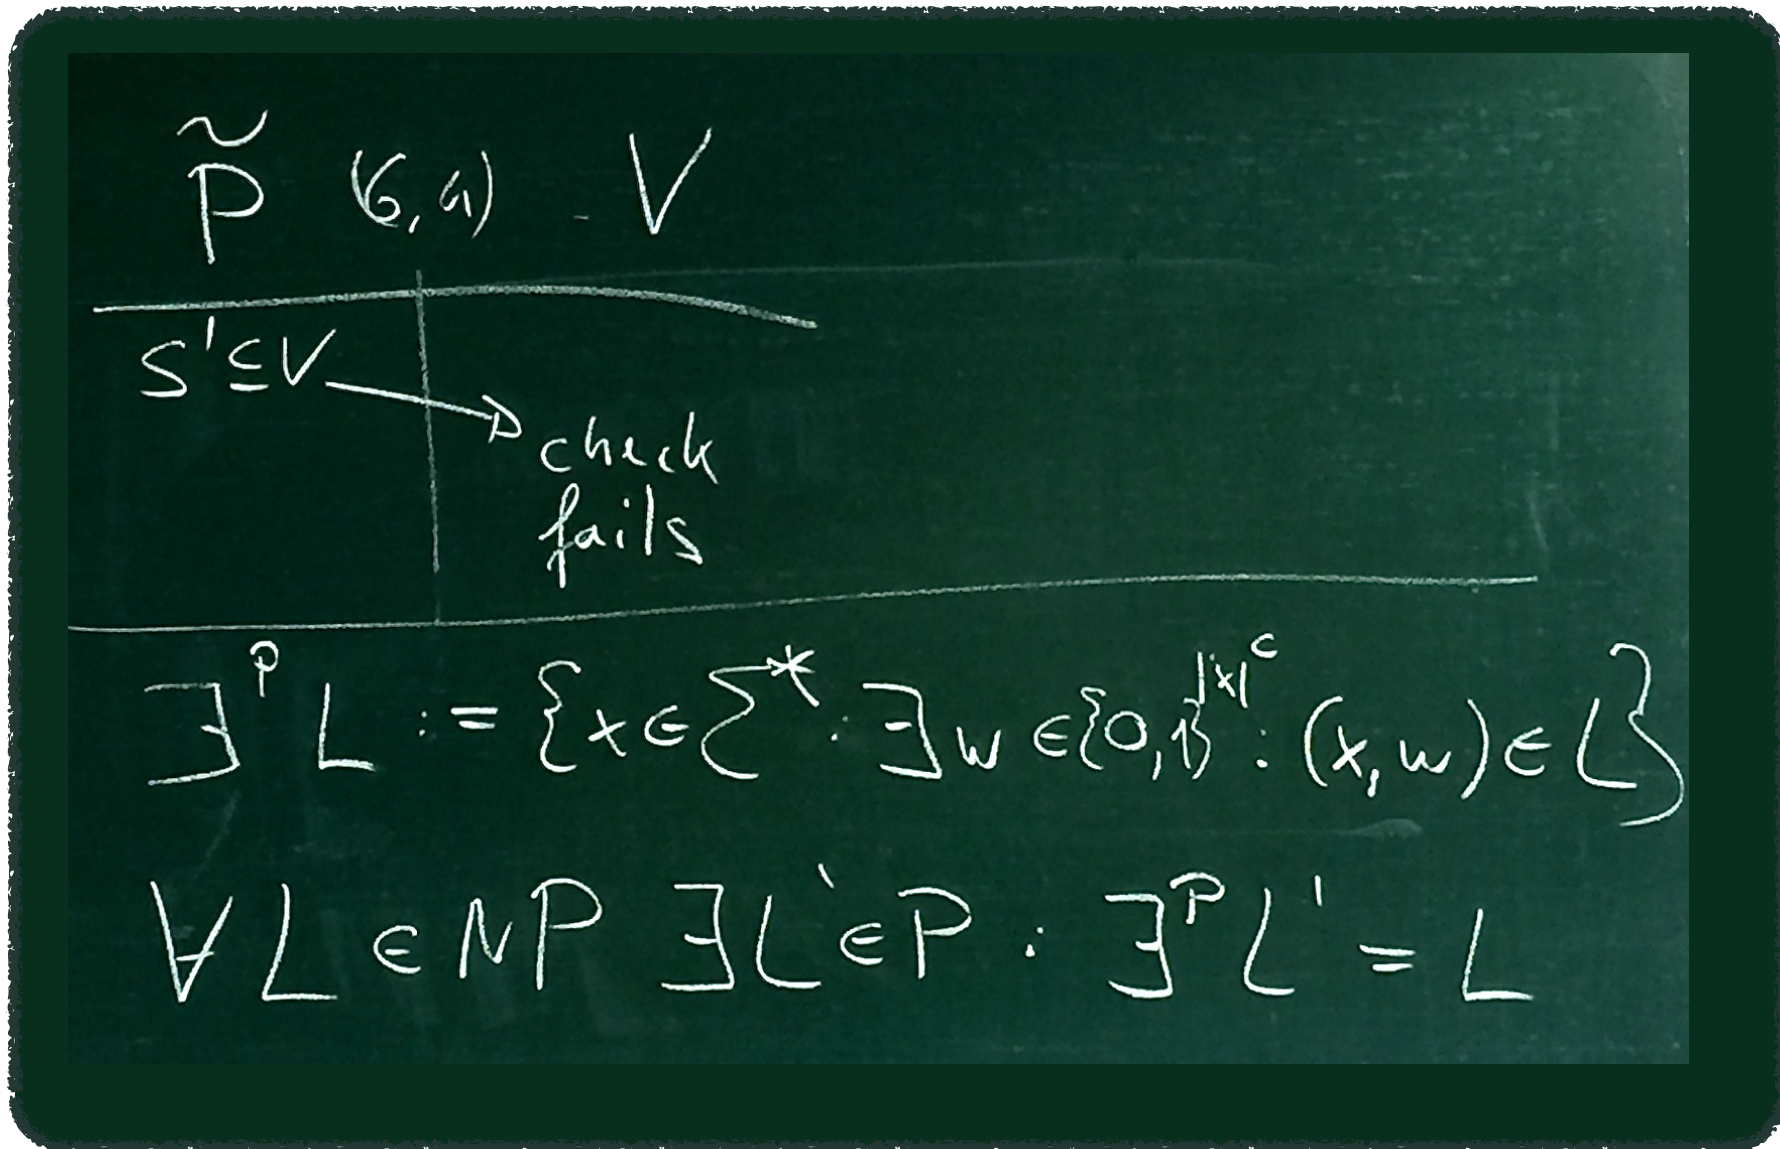 P̃ (G, u) V
S' ⊆ V → check
fails
∃ᴾ L := {x ∈ Σ* : ∃ w ∈ {0,1}^{|x|^c} : (x, w) ∈ L}
∀ L ∈ NP ∃ L' ∈ P : ∃ᴾ L' = L